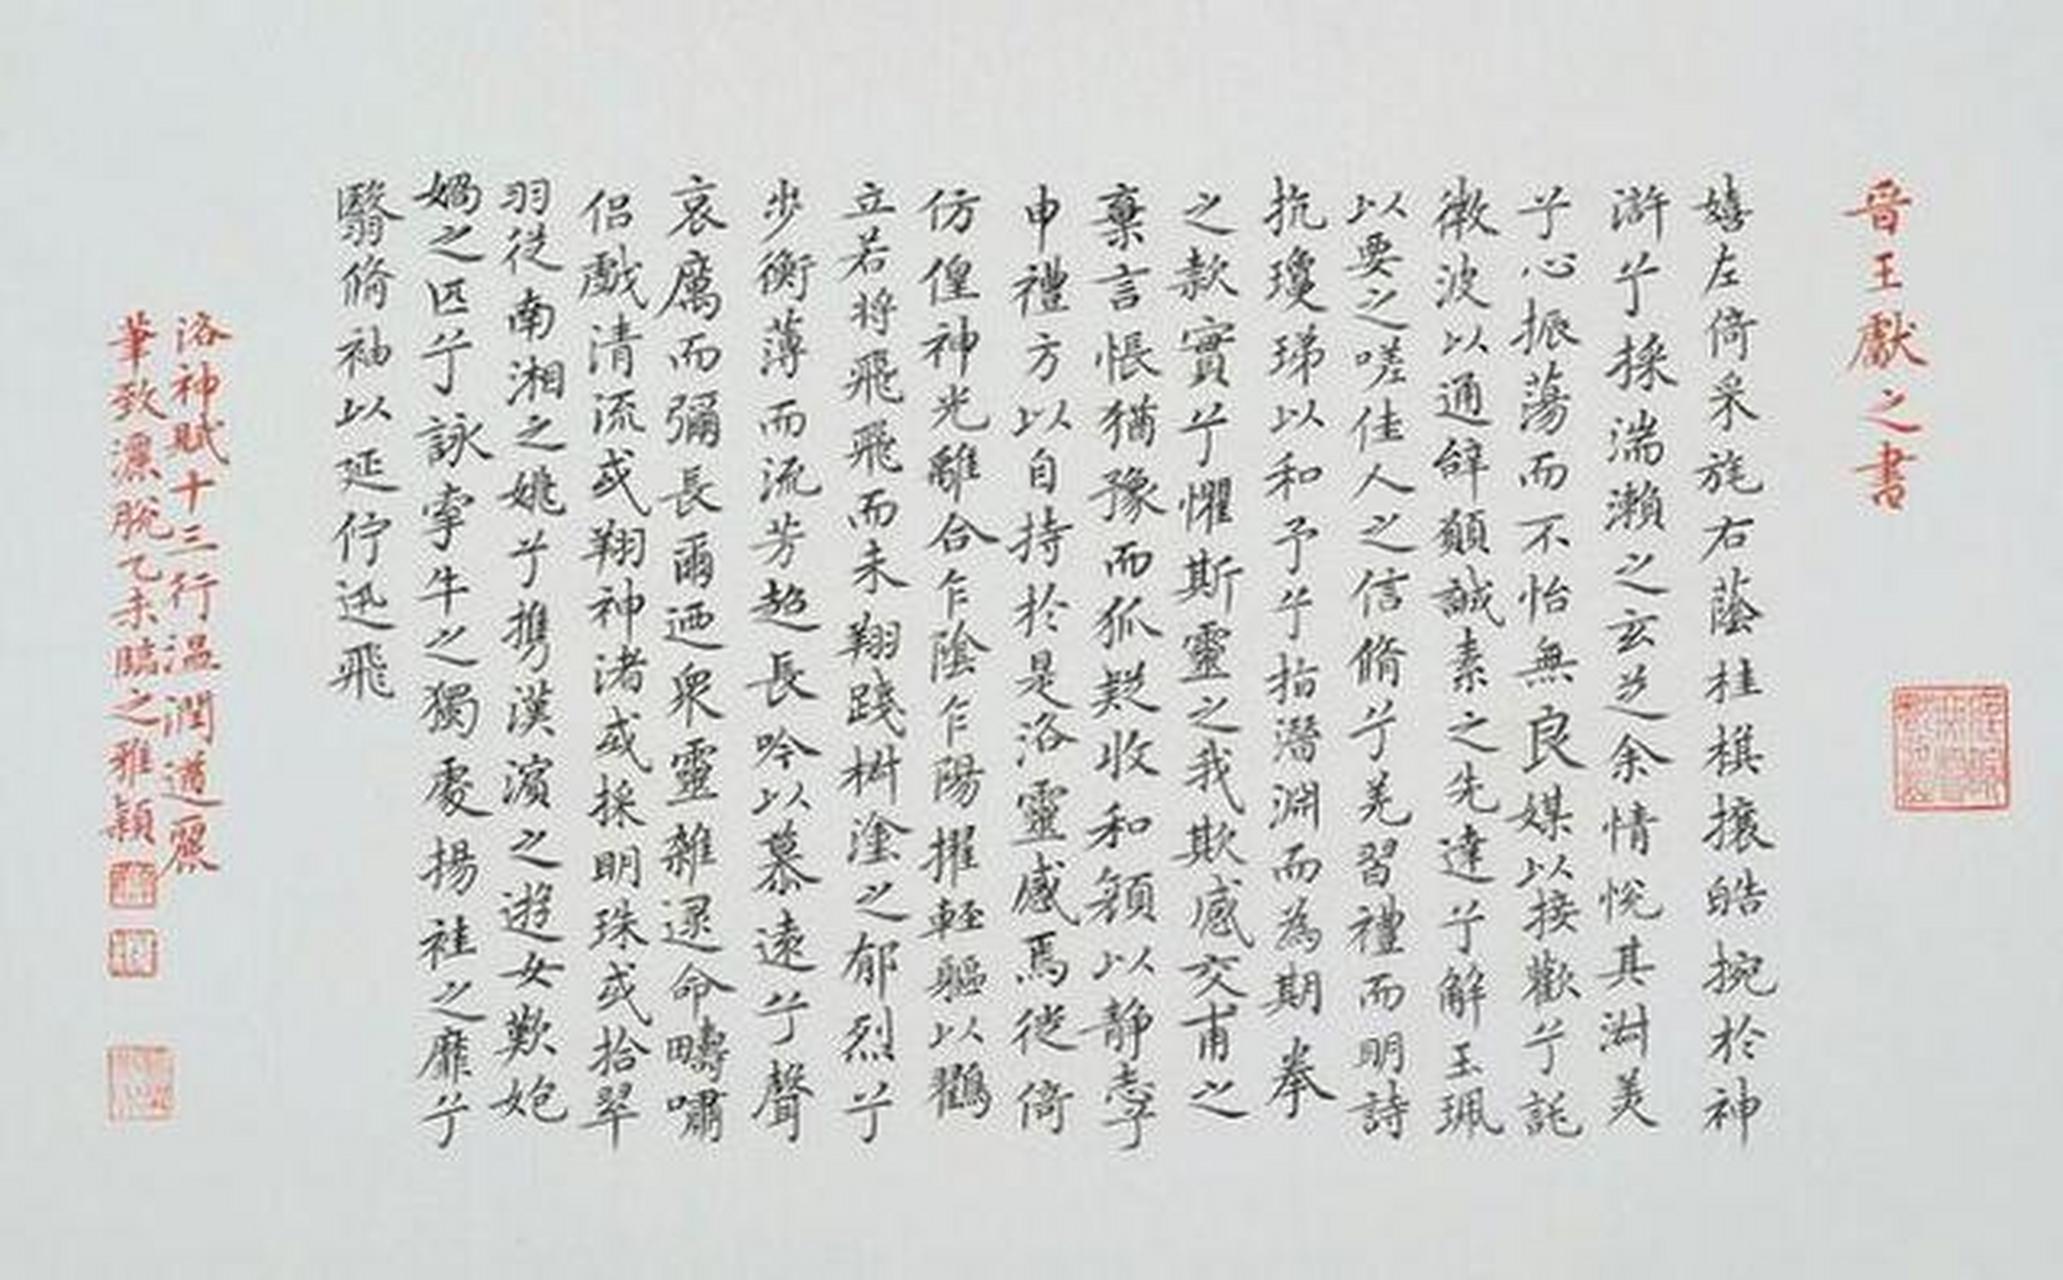 晋王獻之書
嬉左倚采旄右蔭桂棋攘皓捥於神
滸兮採湍瀨之玄芝余情悅其淑美
兮心振蕩而不怡無良媒以接歡兮託
微波以通辭願誠素之先達兮解玉珮
以要之嗟佳人之信脩兮羌習禮而明詩
抗瓊珶以和予兮指潛淵而為期拳
之款實兮懼斯靈之我欺感交甫之
棄言悵猶豫而狐疑收和顏以靜志兮
申禮方以自持於是洛靈感焉徙倚
仿偟神光離合乍陰乍陽擢輕軀以鶴
立若將飛飛而未翔踐椒塗之郁烈兮
步衡薄而流芳超長吟以慕遠兮聲
哀厲而彌長爾迺眾靈雜遝命疇嘯
侶戲清流或翔神渚或採明珠或拾翠
羽從南湘之姚兮攜漢濱之遊女歎匏
媧之匹兮詠牽牛之獨處揚袿之靡兮
翳脩袖以延佇迅飛
洛神賦十三行温潤遒麗
筆致灑脫乙未臨之雅穎